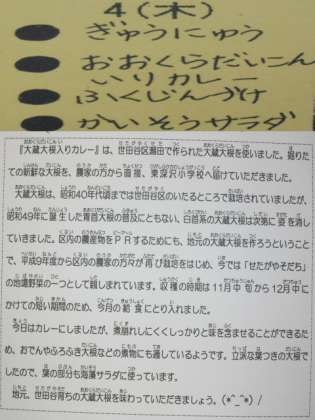 4(木)
●ぎゅうにゅう
●おおくらだいこん
いりカレー
●ふくじんづけ
●かいそうサラダ
『大蔵大根入りカレー』は、世田谷区瀬田で作られた大蔵大根を使いました。掘りた
ての新鮮な大根を、農家の方から直接、東深沢小学校へ届けていただきました。
大蔵大根は、昭和40年代頃までは世田谷区のいたるところで栽培されていましたが、
昭和49年に誕生した青首大根の普及にともない、白首系の大蔵大根は次第に姿を消し
ていきました。区内の農産物をPRするためにも、地元の大蔵大根を作ろうということ
で、平成9年度から区内の農家の方々が再び栽培をはじめ、今では「せたがやそだち」
の地場野菜の一つとして親しまれています。収穫の時期は11月中旬から12月中に
かけての短い期間のため、今月の給食にとり入れました。
今日はカレーにしましたが、煮崩れしにくくしっかりと味を含ませることができるた
め、おでんやふろふき大根などの煮物にも適しているようです。立派な葉つきの大根で
したので、葉の部分も海藻サラダに使っています。
地元、世田谷育ちの大蔵大根を味わっていただきましょう。(*^_^*)/